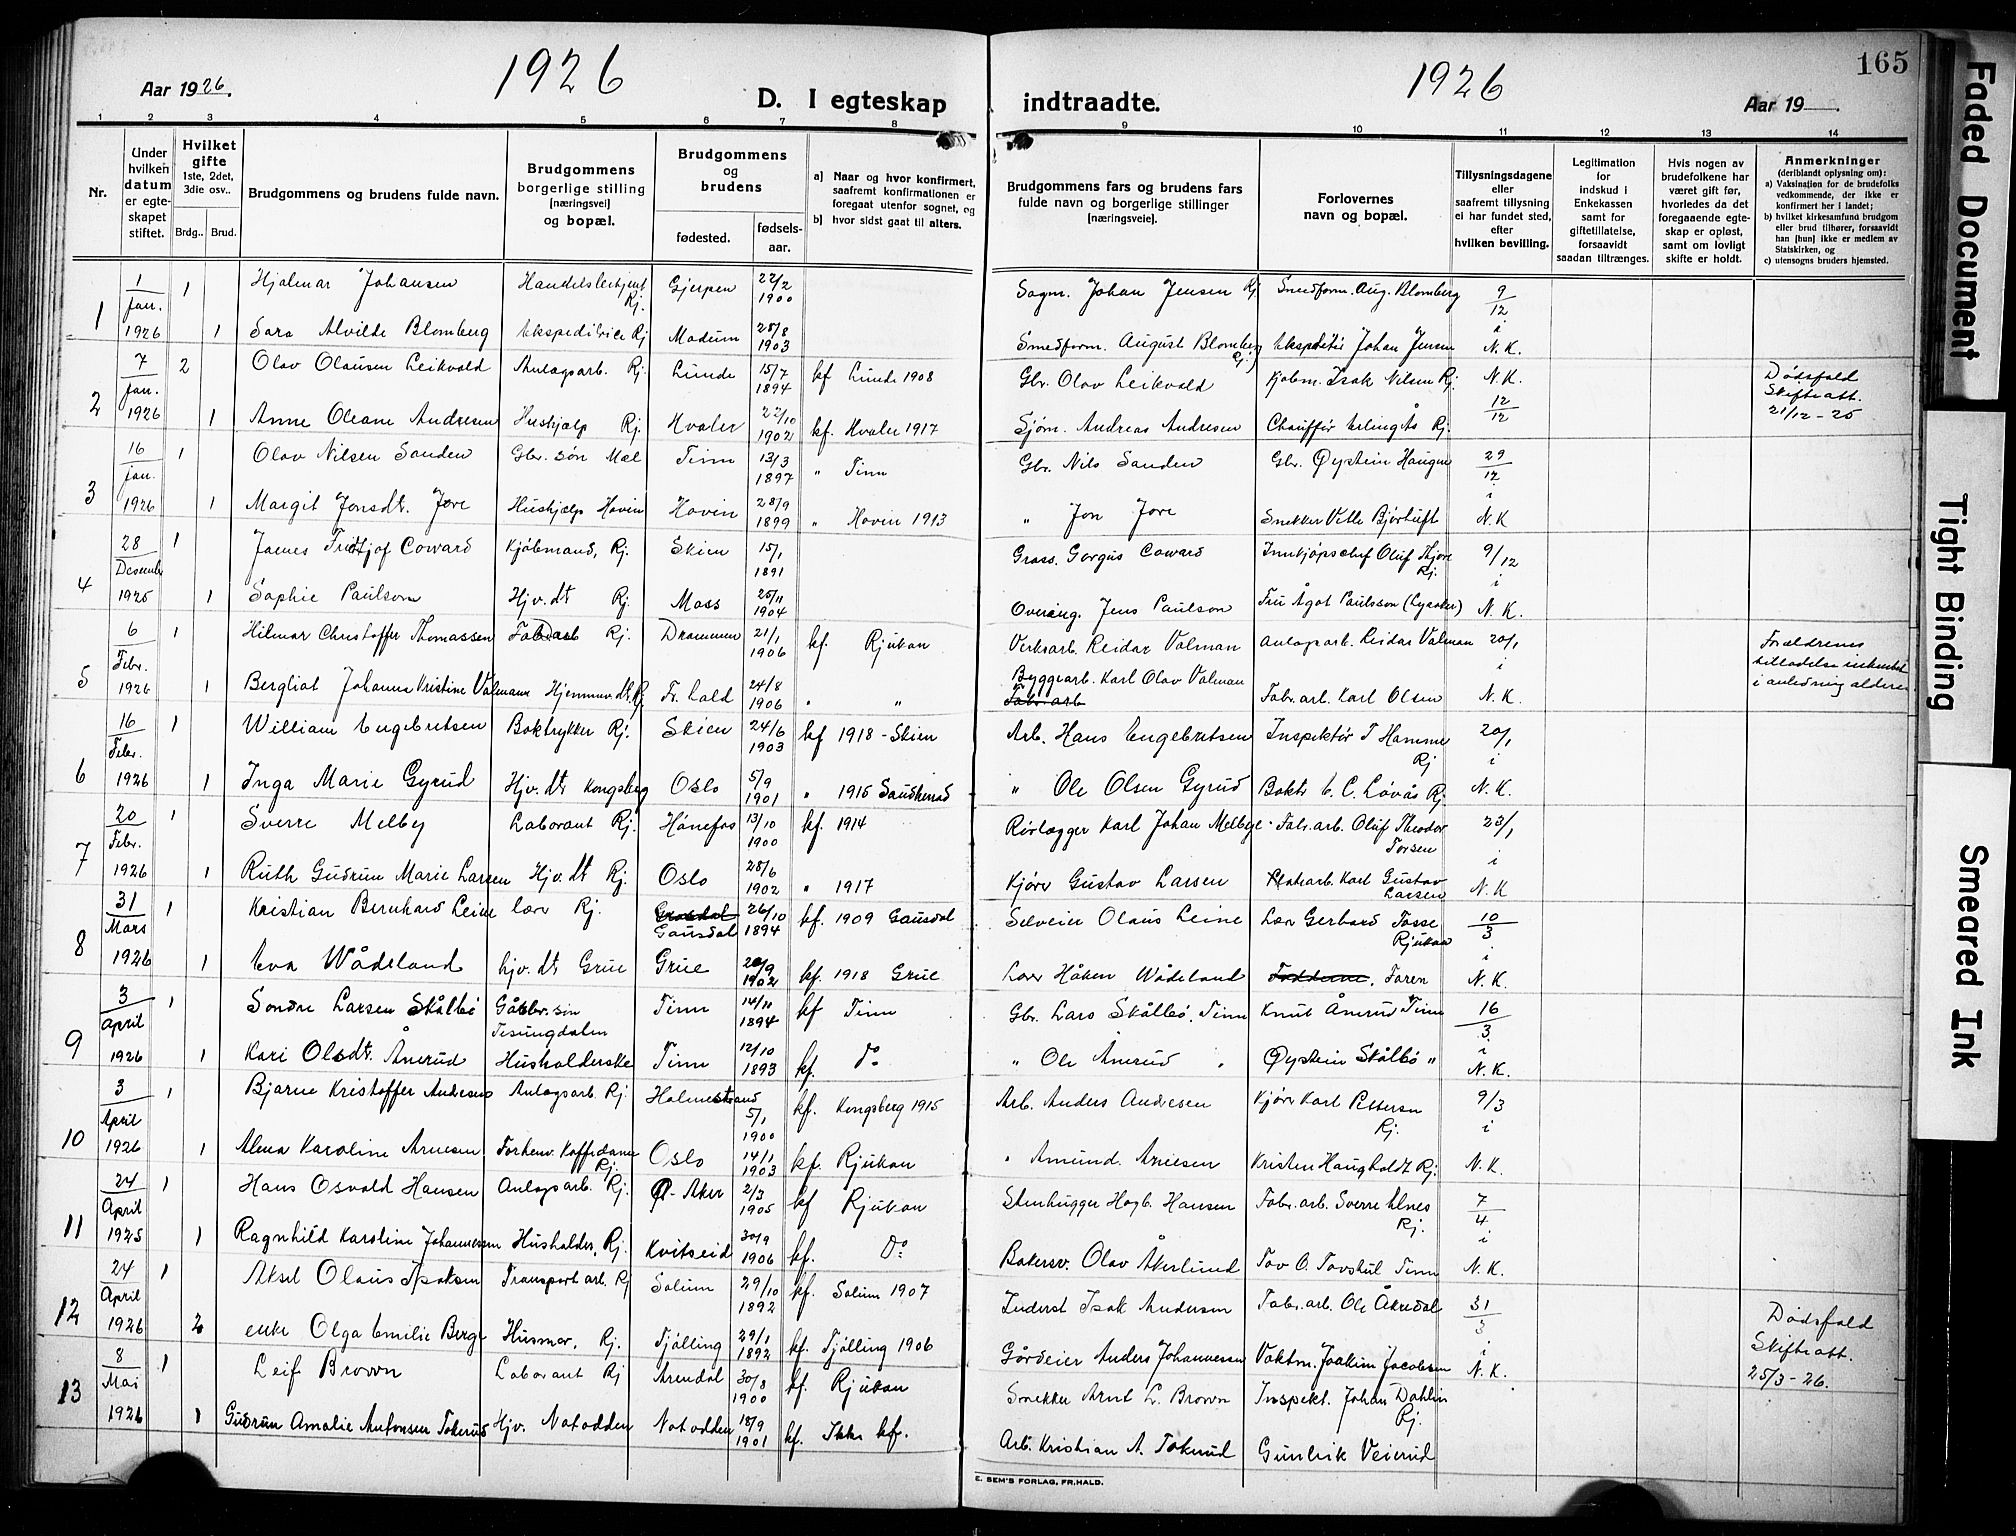 165
Aar 1926. 1926 D. I egteskap
indtraadte. 1926 Aar 19
1 2 3 4 5 6 7 8
9 10 11 12 13 14
Nr.
Under hvilken datum er egteskapet stiftet.
Hvilket gifte 1ste, 2det, 3die osv.. Brdg.. Brud.
Brudgommens og brudens fulde navn.
Brudgommens borgerlige stilling [næringsvei] og bopæl.
Brudgommens og brudens fødested. fødselsaar.
a) Naar og hvor konfirmert, saafremt konfirmationen er foregaat utenfor sognet, og
b) hvor sidst gaat til alters.
Brudgommens fars og brudens fars fulde navn og borgerlige stillinger [næringsvei].
Forlovernes navn og bopæl.
Tillysningsdagene eller saafremt tillysning ei har fundet sted, efter hvilken bevilling.
Legitimation for indskud i Enkekassen samt for giftetillatelse, forsaavidt saadan tiltrænges.
Hvis nogen av brudefolkene har været gift før, hvorledes da det foregaaende egteskap er opløst, samt om lovligt skifte er holdt.
Anmerkninger (deriblandt oplysning om):
a) Vaksination for de brudefolks vedkommende, der ikke er konfirmert her i landet;
b) hvilket kirkesamfund brudgom eller brud tilhører, forsaavidt han [hun] ikke er medlem av Statskirken, og
c) utensogns bruders hjemsted.
1 1/Jan. 1926 1 Hjalmar Johansen Handelsbetjent Rj. Gjerpen 22/2 1900 Sagm. Johan Jensen Rj Smedform. Aug. Blomberg 9/12 i
1 Sara Alvilde Blomberg Ekspeditrice Rj Modum 28/8 1903 Smedform. August Blomberg Rj. Johan Jensen N.K.
2 7/Jan. 1926 2 Olav Olausen Leikvold Anlagsarb. Rj. Lunde 15/7 1894 kf Lunde 1908 Gbr. Olav Leikvold Kjøbm. Isak Nilsen Rj. N.K. Dødsfald Skifteatt. 21/12-25
1 Anne Oleane Andresen Hushjælp Rj. Hvaler 22/10 1902 kf. Hvaler 1917 Sjøm. Andreas Andresen Chauffør Erling Ås Rj. 12/12
3 16/Jan. 1926 1 Olav Nilsen Sanden Gbr. søn Mæl Tinn 13/3 1897 " Tinn Gbr. Nils Sanden Gbr. Øystein Haugen 29/12 i
1 Margit Jonsdt. Jore Hushjælp Hovin Hovin 28/9 1899 " Hovin 1913 " Jon Jore Snekker Vetle Bjørtuft N.K
4 28/Desember 1925 1 James Fridtjof Coward Kjøbmand, Rj. Skien 15/1 1891 Gross. Gorgus Coward Innkjøpschef Oluf Rj. 9/12 i
1 Sophie Paulson Hjv. dt Rj. Moss 25/11 1904 Overing. Jens Paulson Fru Ågot Paulsson (Lysaker) N.K.
5 6/Febr. 1926 1 Hilmar Christoffer Thomassen Fabr.arb Rj. Drammen 21/1 1906 kf. Rjukan Verksarb. Reidar Valman Anlagsarb. Reidar Valman 20/1 i Forældrenes tilladelse i anledning alderen
1 Bergliot Johanne Kristine Valmann Hjemmev. dt. Rj Fr.hald 24/8 1906 " " Byggearb. Karl Olav Valman Fabr.arb Fabr.arb. Karl Olsen N.K.
6 16/Febr. 1926 1 William Engebretsen Boktrykker Rj. Skien 24/6 1903 kf 1918 - Skien Arb. Hans Engebretsen Inspektør T Hammer Rj 20/1 i
1 Inga Marie Gyrud Hjv. dt Kongsberg Oslo 5/9 1901 " 1916 Sandherad " Ole Olsen Gyrud Boktr E. C. Løvås Rj. N.K.
7 20/Febr. 1926 1 Sverre Melby Laborant Rj. Hønefos 13/10 1900 kf. 1914 Rørlægger Karl Johan Melbye Fabr.arb. Oluf Theodor Torsen 23/1 i
1 Ruth Gudrun Marie Larsen Hjv. dt Rj. Oslo 28/6 1902 " 1917 Kjører Gustav Larsen Karl Gustav Larsen N.K
8 31/Mars 1926 1 Kristian Bernhard Leine Lærer Rj. Gausdal 26/10 1894 kf. 1909 Gausdal Selveier Olaus Leine Lær Gerhard Fosse Rjukan 10/3 i
1 Eva Wådeland hjv. dt Grue Grue 20/9 1902 kf. 1918 Grue Lærer Håken Wådeland Faren N.K.
9 3/April 1926 1 Sondre Larsen Skålbø søn Tessungdalen Tinn 14/11 1894 kf Tinn Gbr. Lars Skålbø, Tinn Knut Ånerud Tinn 16/3 i
1 Kari Olsdt. Ånerud Husholderske Tinn 12/10 1893 kf. do " Ole Ånerud " Øystein Skålbø " N.K.
10 3/April 1926 1 Bjarne Kristoffer Andresen Anlagsarb. Rj. Holmestrand 5/1 1900 kf. Kongsberg 1915 Arb. Anders Andresen Kjører Karl Pettersen Rj. 9/3 i
1 Alma Karoline Arnesen Forhenv. Kaffedame Rj. Oslo 14/1 1903 kf. Rjukan " Amund. Arnesen Kristen Haugholdt Rj. N.K.
11 24/April 1925 1 Hans Osvald Hansen Anlagsarb. Rj. Ø. Aker 2/3 1905 kf Rjukan Stenhugger Hagb. Hansen Fabr.arb. Sverre Elnes Rj. 7/4 i
1 Ragnhild Karoline Johannessen Husholder, Rj. Kviteseid 30/9 1906 kf. do Bakersv. Olav Åkerlund Tov O. Tovshul Tinn N.K.
12 24/April 1926 1 Aksel Olaus Isaksen Transportarb. Rj Solum 29/10 1892 kf. Solum 1907 Inderst Isak Andersen Fabr.arb. Ole Åkredal 31/3 i
2 enke Olga Emilie Berge Husmor, Rj. Tjølling 29/1 1892 kf. Tjølling 1906 Gårdeier Anders Johannessen Vaktm. Joakim Jacobsen N.K. Dødsfald Skifteatt. 25/3-26.
13 8/Mai 1926 1 Leif Brown Laborant Rj Arendal 30/8 1900 kf. Rjukan Snekker Arnt L. Brown Inspekt. Johan Dahlin Rj.
1 Gudrun Amalie Antonsen Tokerud Hjv. Notodden Notodden 18/9 1901 kf. Ikke kf. Arb. Kristian A. Tokerud Gunleik Veierud
E. SEM'S FORLAG, FR.HALD.
Faded Document
Tight Binding
Smeared Ink